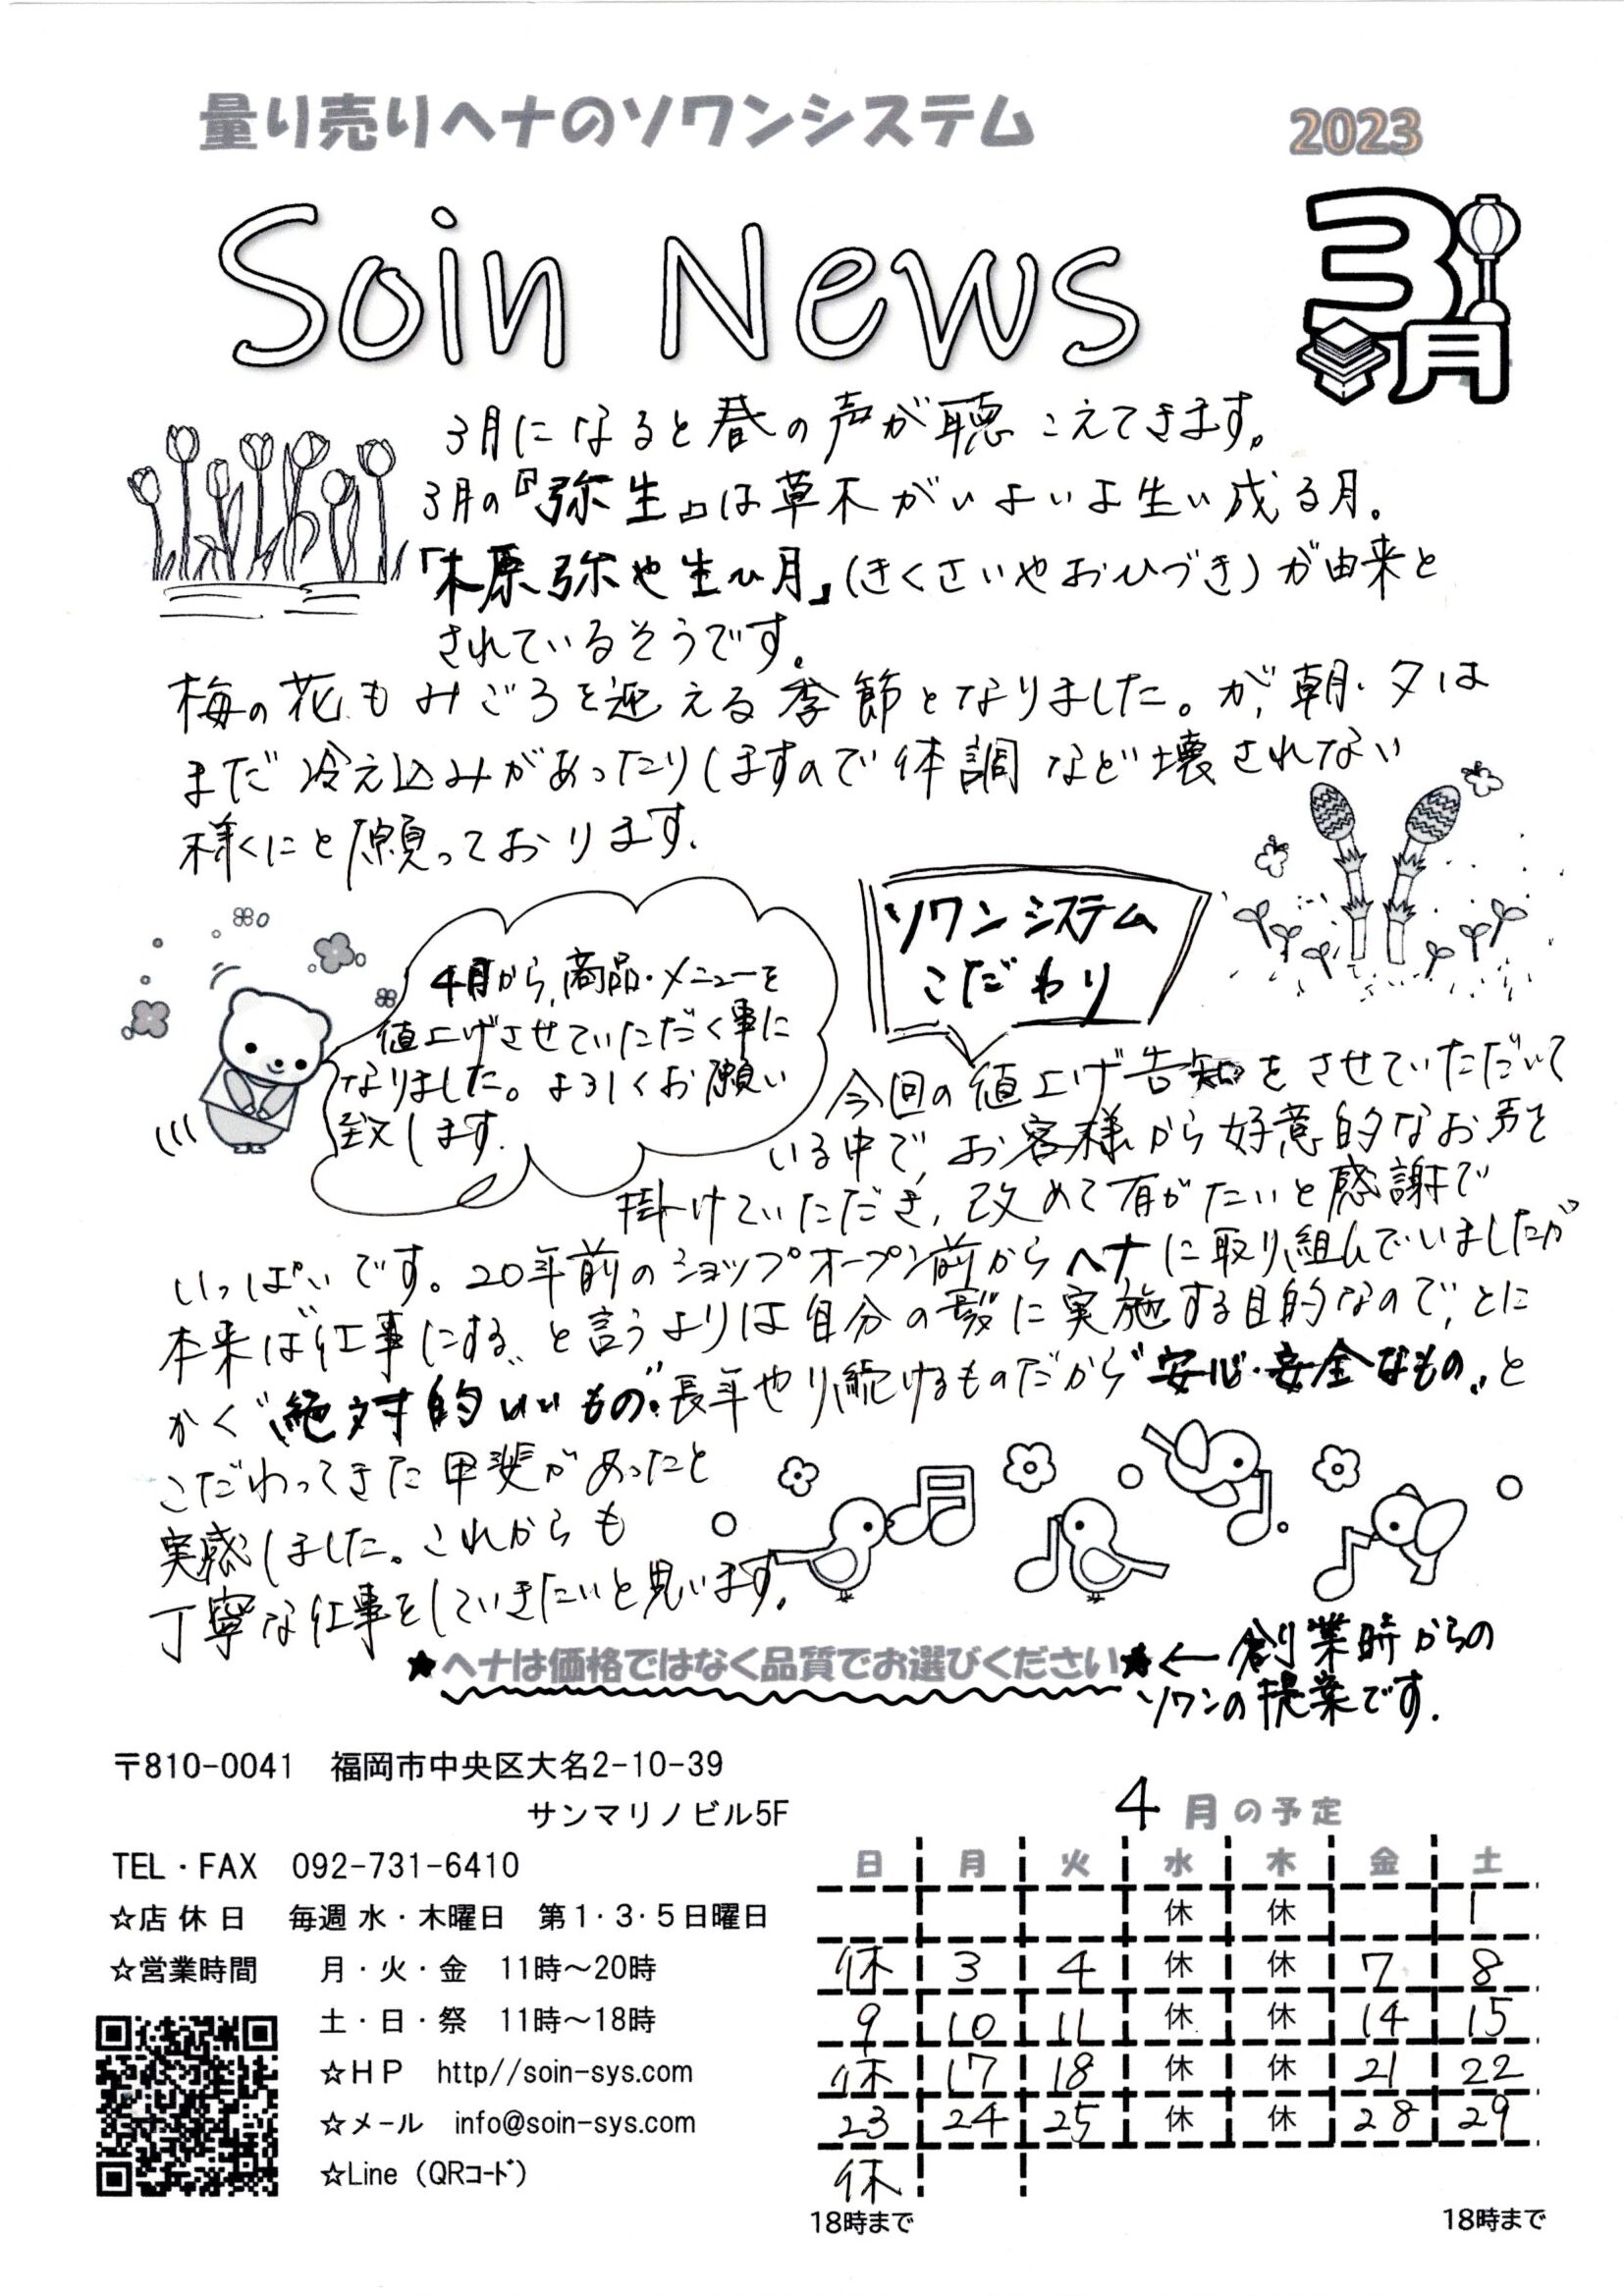 量り売りヘナのソワンシステム
2023
Soin News
3月
3月になると春の声が聴こえてきます。
3月の『弥生』は草木がいよいよ生い成る月。
「木原弥也生ひ月」(きくさいやおひづき)が由来と
されているそうです。
梅の花もみごろを迎える季節となりました。が、朝・夕は
まだ冷え込みがあったりしますので体調など壊されない
様くにと願っております。
4月から、商品・メニューを
値上げさせていただく事に
なりました。よろしくお願い
致します。
ソワンシステム
こだわり
今回の値上げ告知をさせていただいて
いる中で、お客様から好意的なお声を
掛けていただき、改めて有がたいと感謝で
いっぱいです。20年前のショップオープン前からヘナに取り組んでいましたが
本来は〝仕事にする〟と言うよりは自分の髪に実施する目的なので、とに
かく〝絶対的いいもの〟長年やり続けるものだから〝安心・安全なもの〟と
こだわってきた甲斐があったと
実感しました。これからも
丁寧な仕事をしていきたいと思います。
★ヘナは価格ではなく品質でお選びください★←創業時からの
ソワンの提案です。
〒810-0041 福岡市中央区大名2-10-39
サンマリノビル5F
TEL・FAX 092-731-6410
☆店休日 毎週 水・木曜日 第1・3・5日曜日
☆営業時間 月・火・金 11時～20時
土・日・祭 11時～18時
☆HP http//soin-sys.com
☆メール info@soin-sys.com
☆Line (QRコード)
4月の予定
日 月 火 水 木 金 土
休 休 1
休 3 4 休 休 7 8
9 10 11 休 休 14 15
休 17 18 休 休 21 22
23 24 25 休 休 28 29
休
18時まで 18時まで